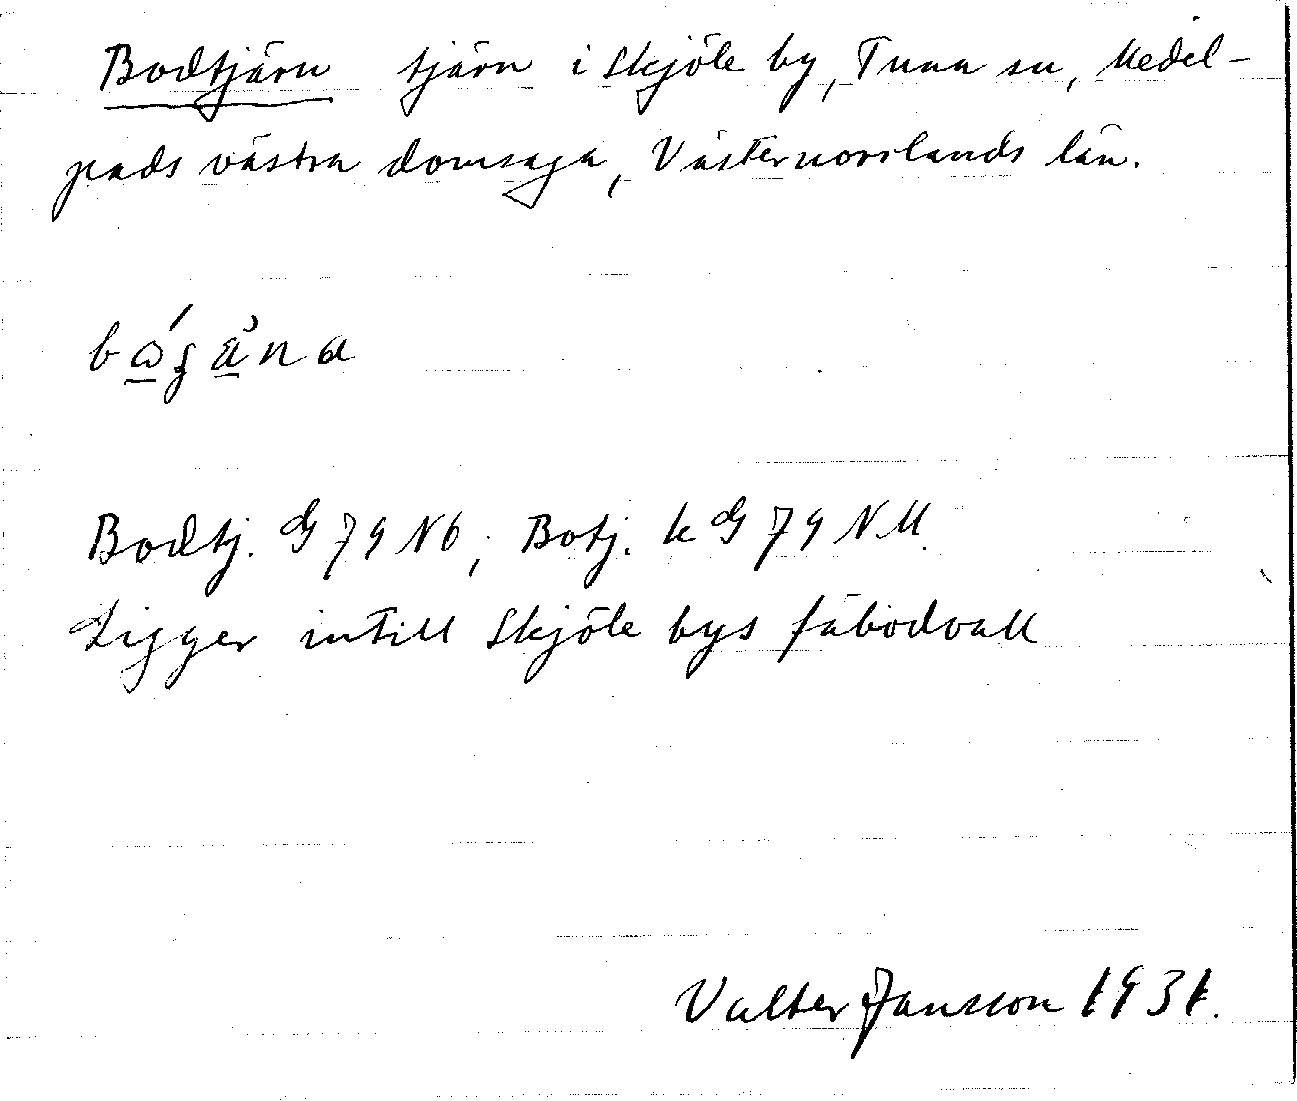 Bodtjärn tjärn i Skjöle by, Tuna sn, Medel-
pads västra domsaga, Västernorrlands län.
Bodtj. G 79 NÖ; Botj. k G 79 NV.
Ligger intill Skjöle bys fäbodvall
Valter Jansson 1931.